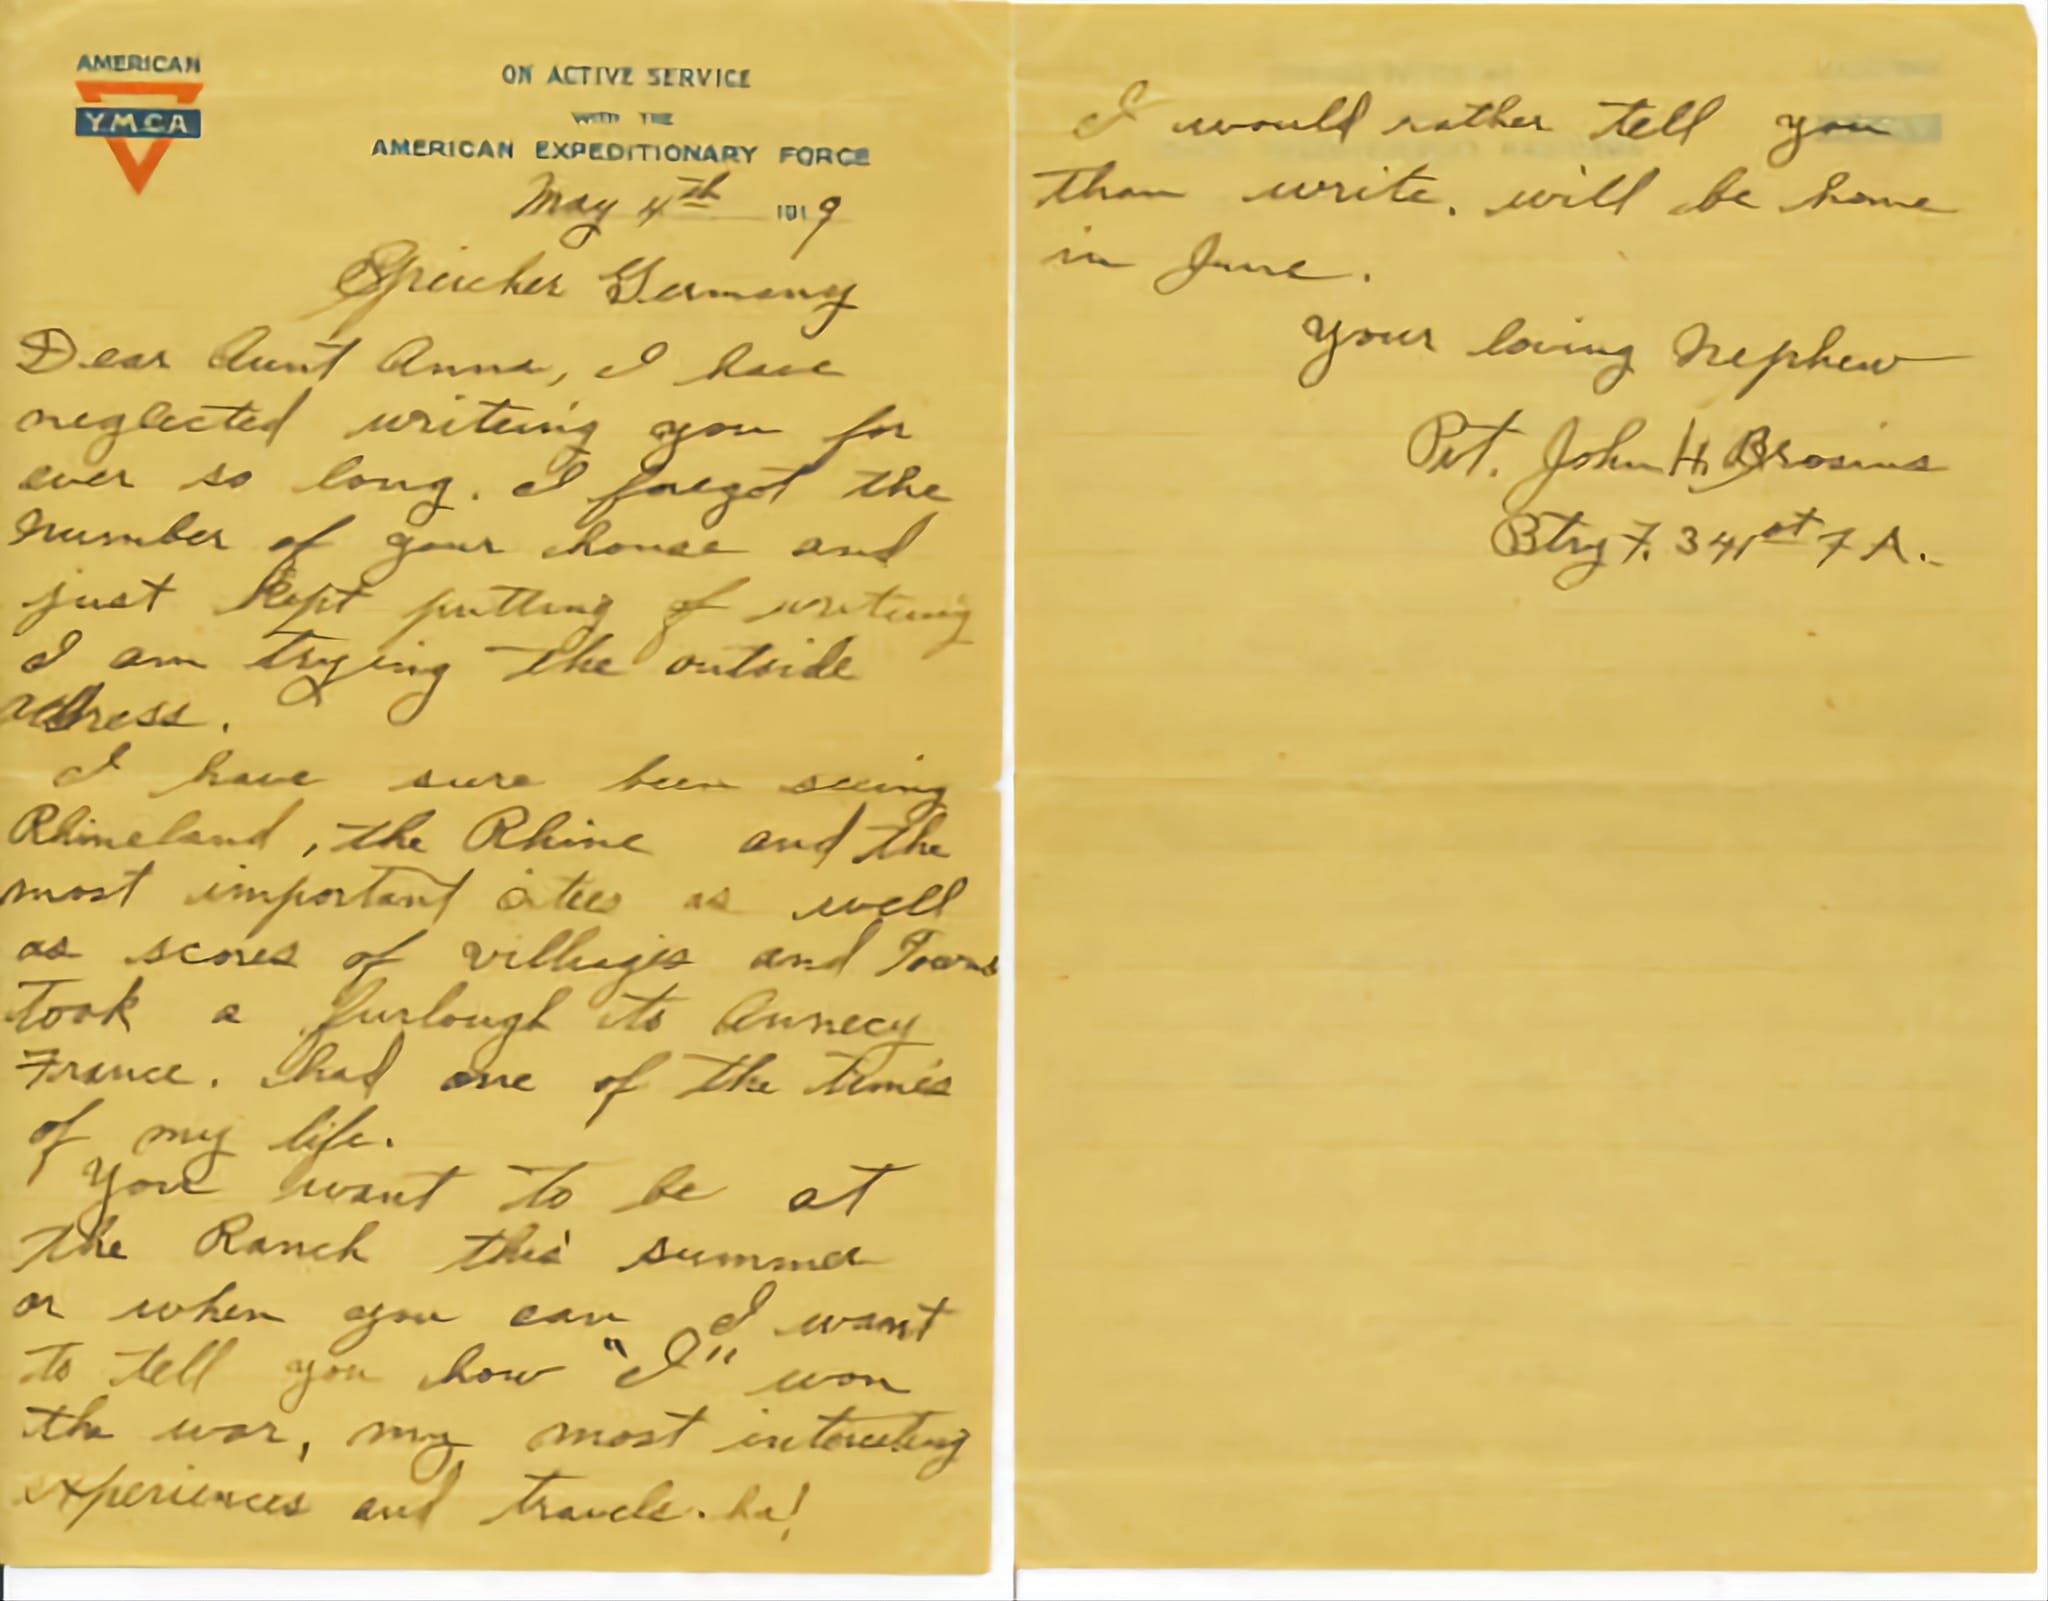 AMERICAN
YMCA
ON ACTIVE SERVICE
WITH THE
AMERICAN EXPEDITIONARY FORCE
May 4th 1919
Speicher Germany
Dear Aunt Anna, I have
neglected writeing you for
ever so long. I foregot the
number of your house and
just kept putting of writeing
I am trying the outside
address.
I have sure been seeing
Rhineland, the Rhine and the
most important cities as well
as scores of villiages and Towns
Took a furlough to Annecy
France. had one of the times
of my life.
You want to be at
the Ranch this summer
or when you can I want
to tell you how "I" won
the war, my most interesting
experiences and travels. ha!
I would rather tell you
than write. will be home
in June.
Your loving Nephew
Pvt. John H. Brosius
Btry F. 341st F A.